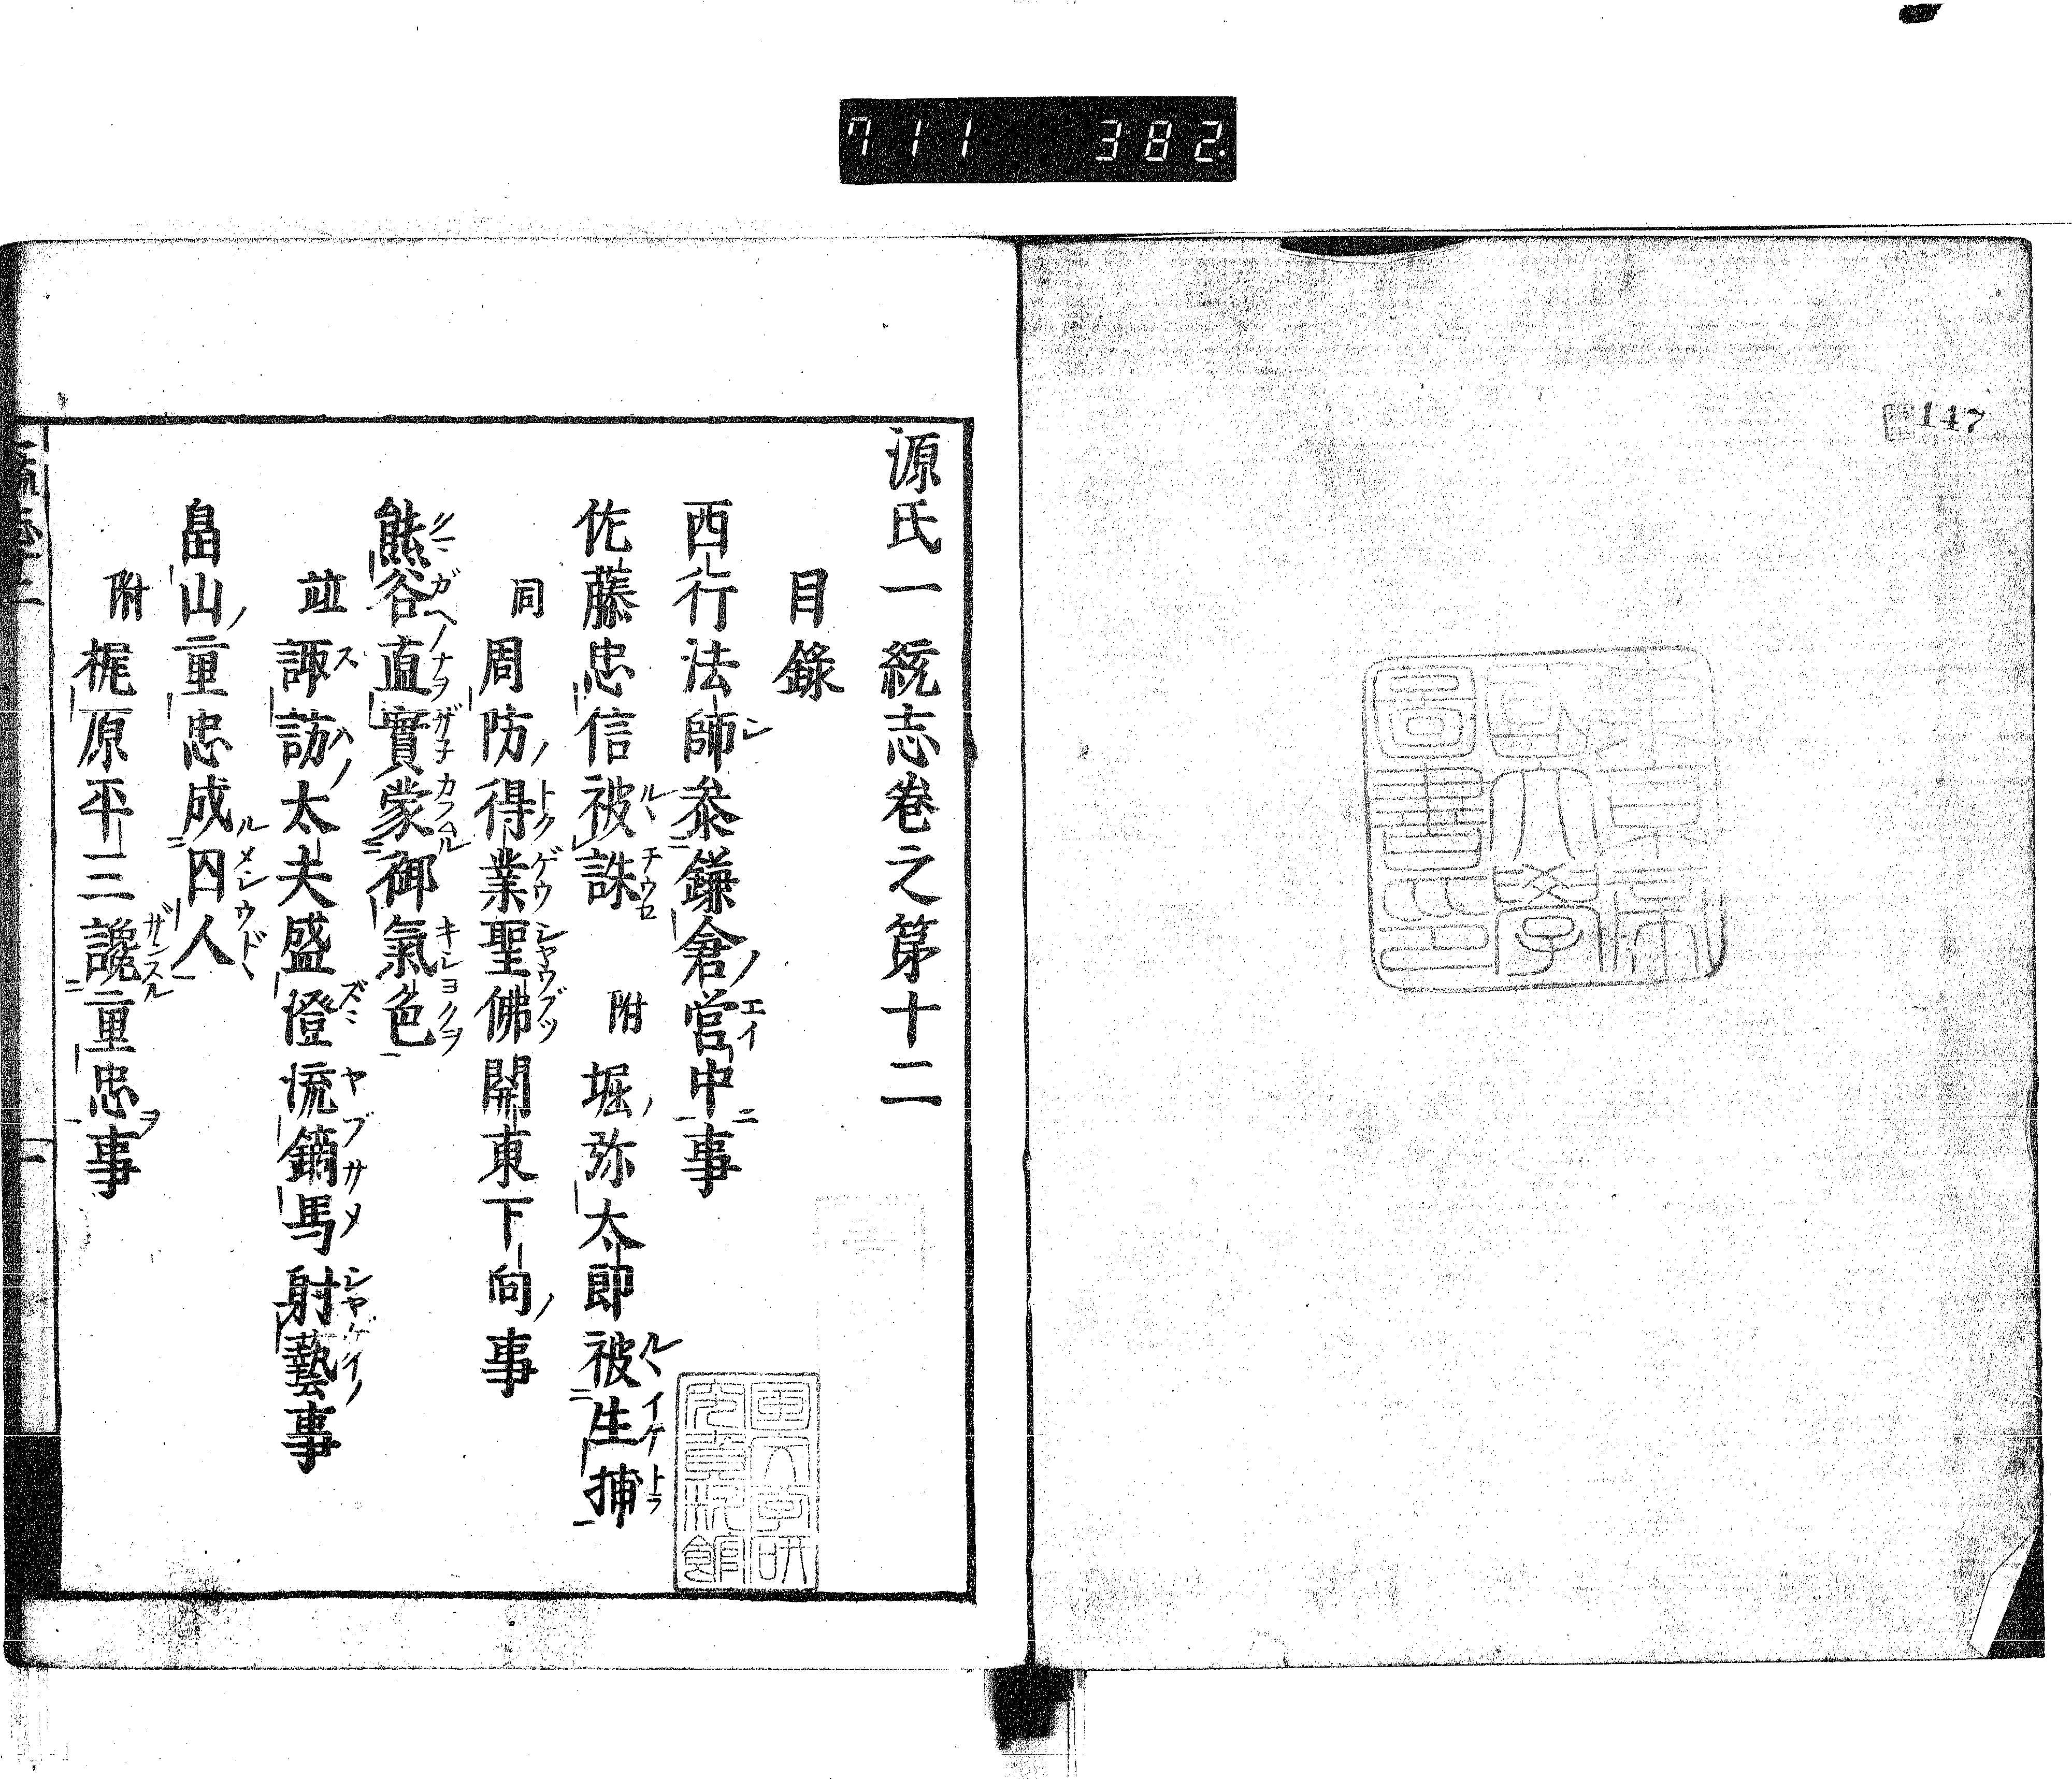 711 382.
147
東京帝國大學圖書印
源氏一統志卷之第十二
目録
西行法師參鎌倉営中事
佐藤忠信被誅 附 堀弥太郎被生捕
同 周防得業聖佛関東下向事
熊谷直實蒙御氣色
並 諏訪太夫盛澄流鏑馬射藝事
畠山重忠成囚人
附 梶原平三讒重忠事